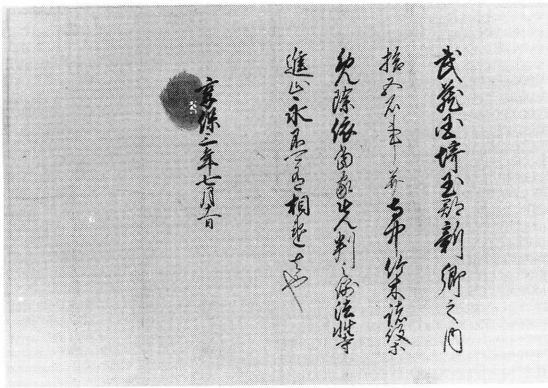 武蔵国埼玉郡新郷之内
拾五石事并寺中竹木諸役等
免除依當家先判之例法性寺
進止永不可有相違者也
享保三年七月十一日